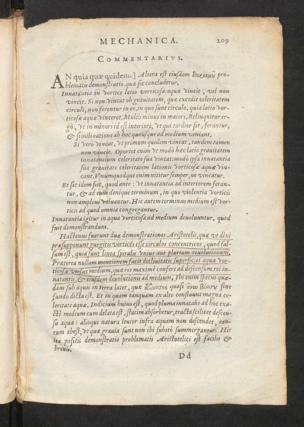 MECHANICA. 209
COMMENTARIUS.
AN quia quæ quidem.] Altera est eiusdem
problematis demonstratio, quæ sic concluditur.
Innatantia in vortice latus vorticosæ aquæ vincit, vel non
vincit. Si non vincat ob gravitatem, quæ excedit celeritatem
circuli, non feruntur in eo, in quo sunt circulo, quia latus vorticosæ
aquæ vinceret. Multò minus in maiori. Relinquitur ergo,
ut in minori id est interiori, & qui tardior sit, ferantur,
& sic inclinatione ab hoc quousque ad medium veniant.
Si verò vincat, vel primum quidem vincat, tandem tamen
non vincit. Oportet enim ut modò hæc latio gravitatem
innatantium celeritate sua vincat: modò ipsa innatantia
sua gravitate celeritatem lationis vorticosæ aquæ vincant.
Et sic idem fit, quod ante : ut innatantia ad interiorem ferantur,
& ad eum denique terminum, in quo violentia vorticis
non amplius volvuntur. Hic autem terminus medium est vorticis
ad quod omnia congregantur.
Innatantia igitur in aqua vorticosa ad medium devoluuntur, quod
fuit demonstrandum.
Hactenus fuerunt duæ demonstrationes Aristotelis, quæ
præsupponunt gurgitis vorticosi esse circulos concentricos, quod falsum
est, quia sunt linea spiralis unius aut plurium revolutionum.
Præterea nullam mentionem facit declivitatis superficiei aquæ
vorticosæ versus medium, quæ res maximè confert ad descensum rei
innatantis, & eiusdem devolutionem ad medium.
sub aqua in terra latet, quæ
fundò dicta est. Et in quam tanquam
levitatur aqua. Indicium huius est, quod pluma innatans ad hoc
medium cum delata est, statim absorbetur, tracta scilicet descensu
aquæ : alioqui natura levior infra aquam non descendet, tantum
abest, ut quæ gravia sunt non ibi subitò summergantur. His
ita positis demonstratio problematis Aristotelici est facilis &
brevis.
Dd